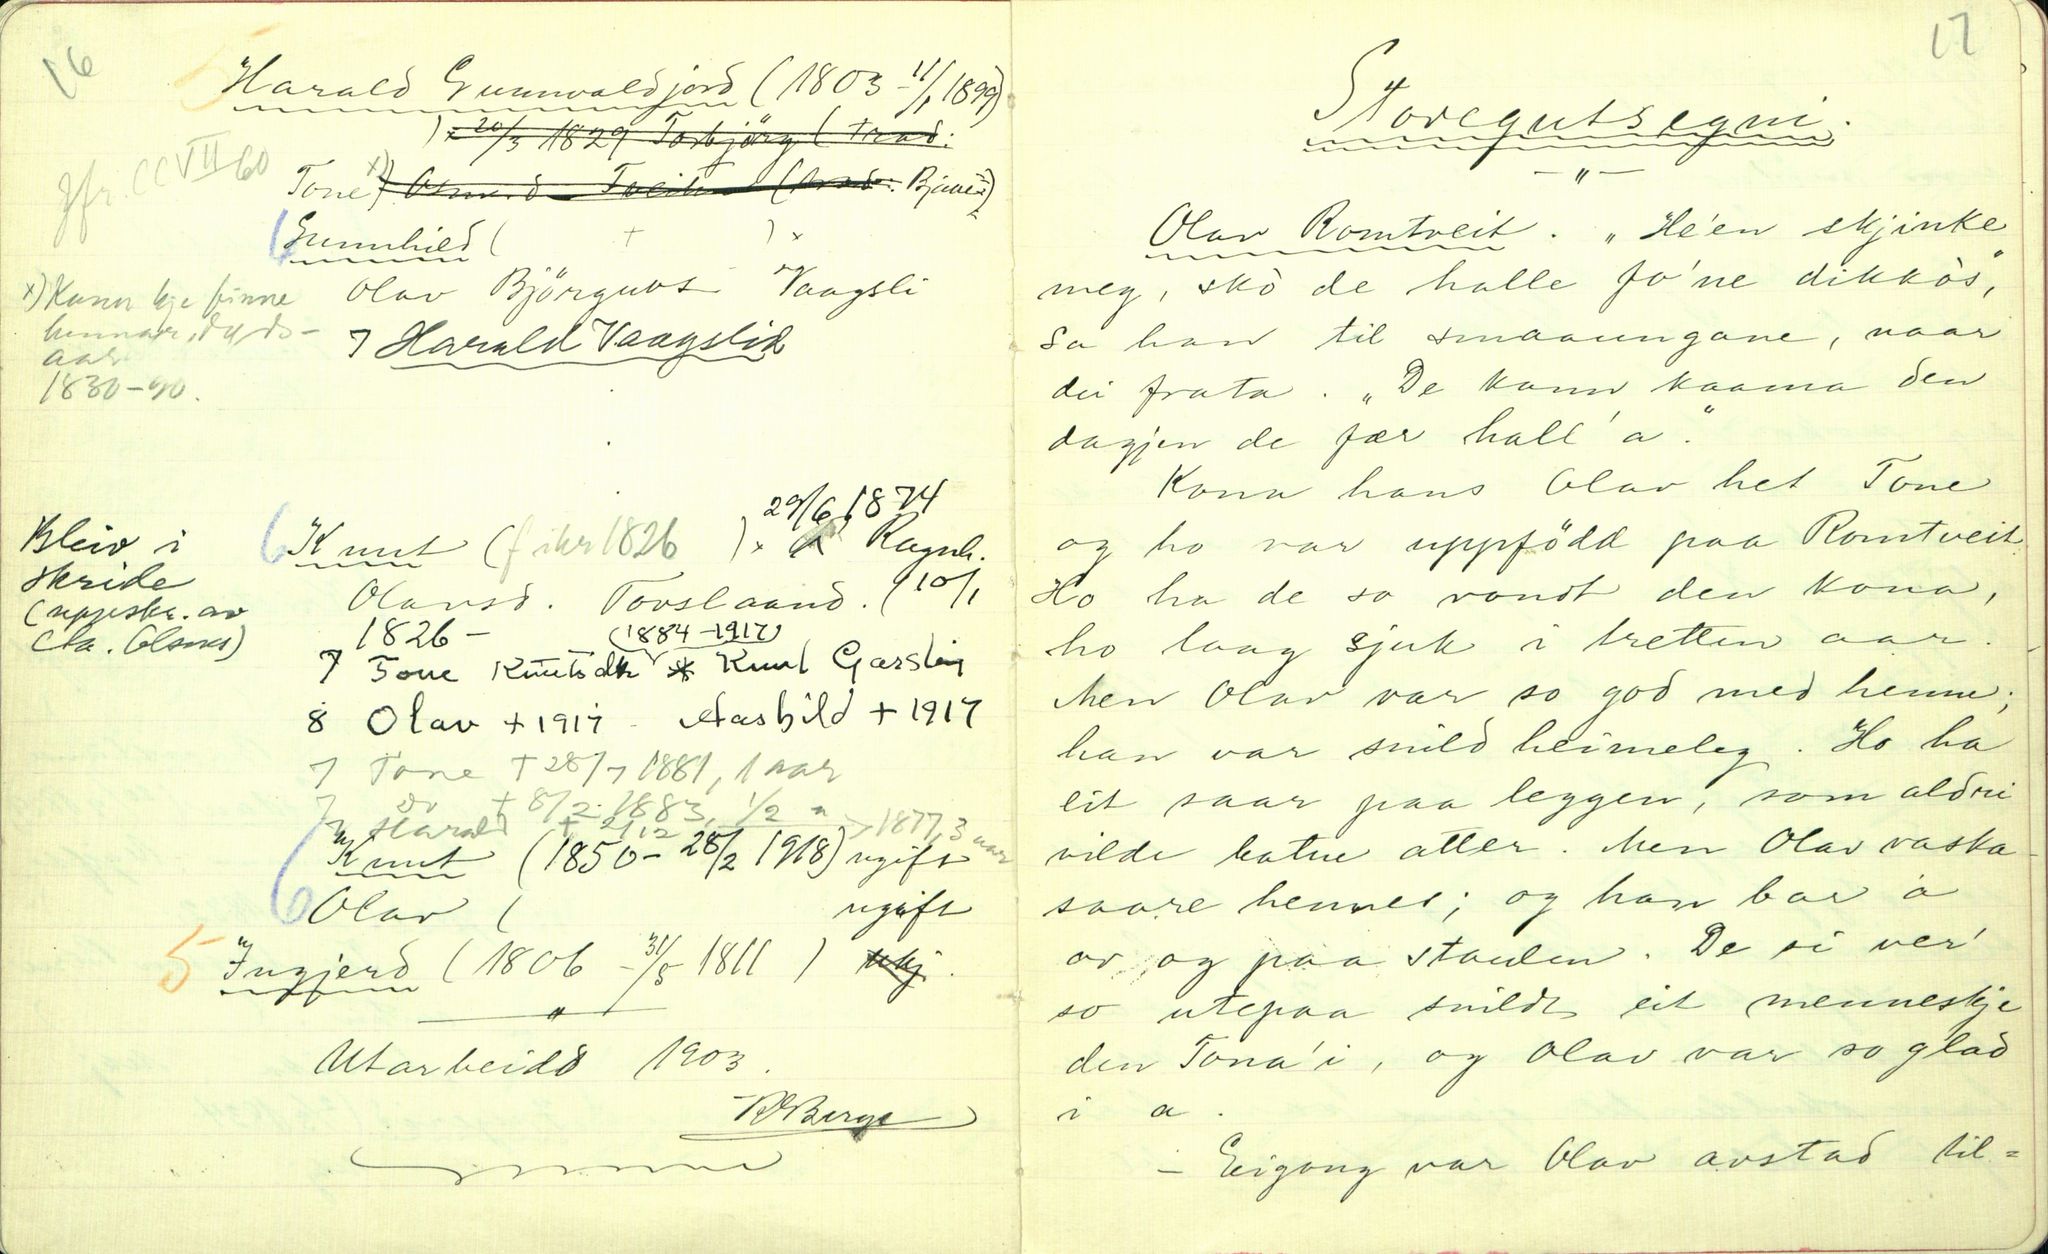 16
5 Harald Gunnvaldjord (1803 - 11/1 1899)
)x 20/3 1829 Torbjörg ( Traad.
Jfr. CC VII 60
Tone x)
6 Gunnhild ( + ) x
Olav Björguvs Vaagsli
x) Kann kje finne
hennar, döds-
aar
1830-90.
7 Harald Vaagslid
29/6 1874
Bleiv i
skride
(uppskr. av
6 Knut (f ikr 1826 ) x Ragnh.
Olavsd. Tovslaand. (10/1
1826 - (1884-1917)
7 Tone Knutsdtr * Knut Garsli
8 Olav + 1917 Aasbild + 1917
7 Tone + 28/7 1881, 1 aar
7 Do + 8/2 1883, 1/2 "
7 Harald + 2/12 1877, 3 aar
6 Knut (1850 - 28/2 1918) ugift
Olav ( ugift
5 Ingjerd (1806 - 31/5 1811 ) ukj.
"
Utarbeidd 1903.
RBerge
17
Storegutsegni.
- " -
Olav Romtveit. „Hé'en skjinke
meg, skò de halle fo'ne dikkòs",
sa han til smaaungane, naar
dei frata. „De kann kaama den
dagjen de fær hall'a."
Kona hans Olav het Tone
og ho var uppfödd paa Romtveit
Ho ha de so vondt den kona,
ho laag sjuk i tretten aar.
Men Olav var so god med henne;
han var snild heimeleg. Ho ha
eit saar paa leggen, som aldri
vilde batne atter. Men Olav vaska
saare hennes; og han bar a
av og paa staulen. De si ver'
so utepaa snildt eit menneskje
den Tona'i, og Olav var so glad
i a.
- Eigong var Olav avstad til=